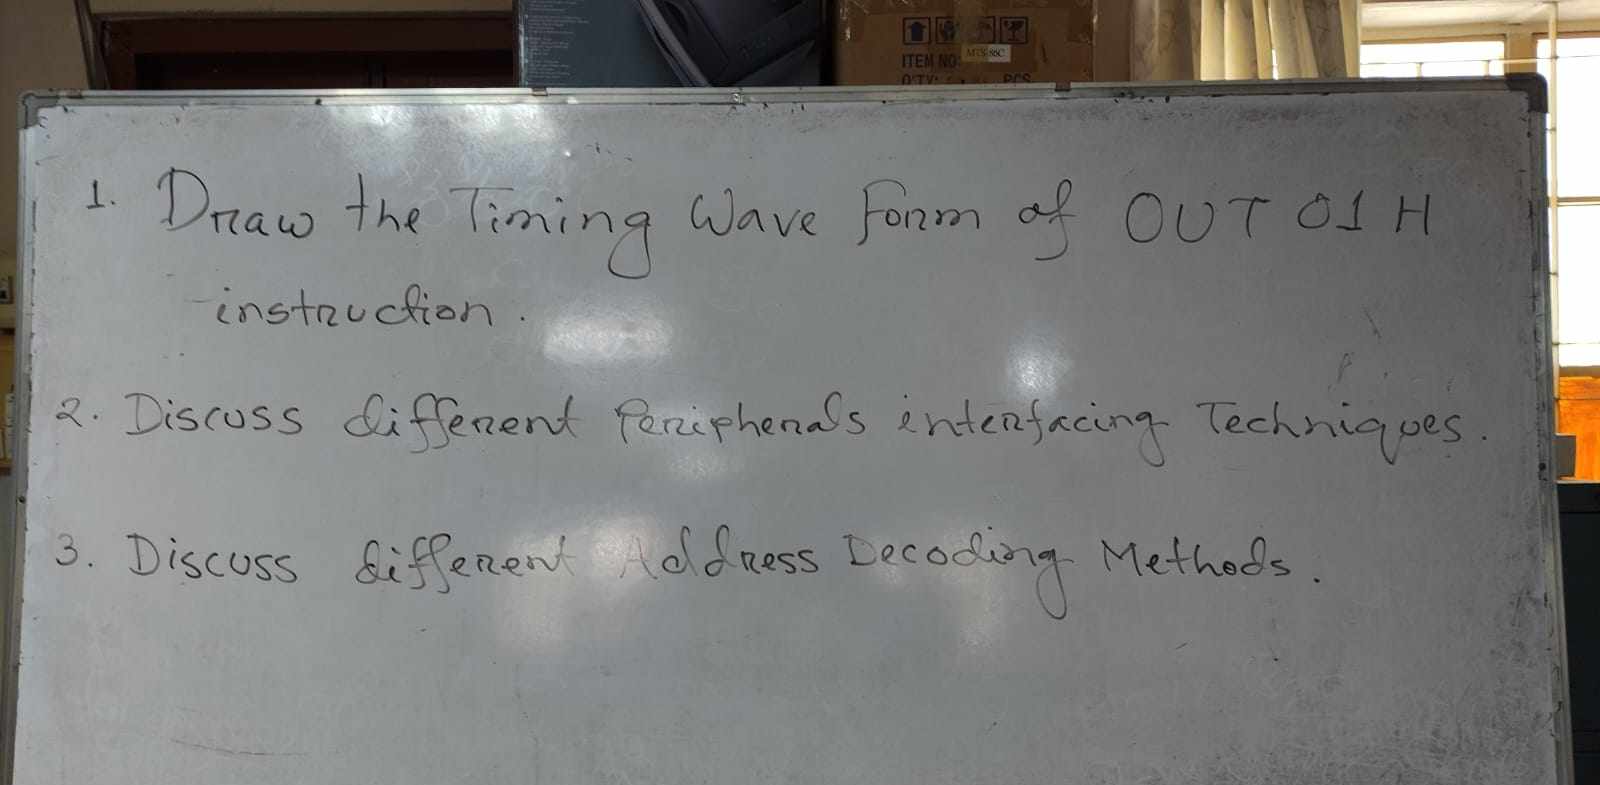 ITEM NO: MTS-86C
Q'TY: PCS
1. Draw the Timing Wave Form of OUT 01 H
instruction.
2. Discuss different Peripherals interfacing Techniques.
3. Discuss different Address Decoding Methods.